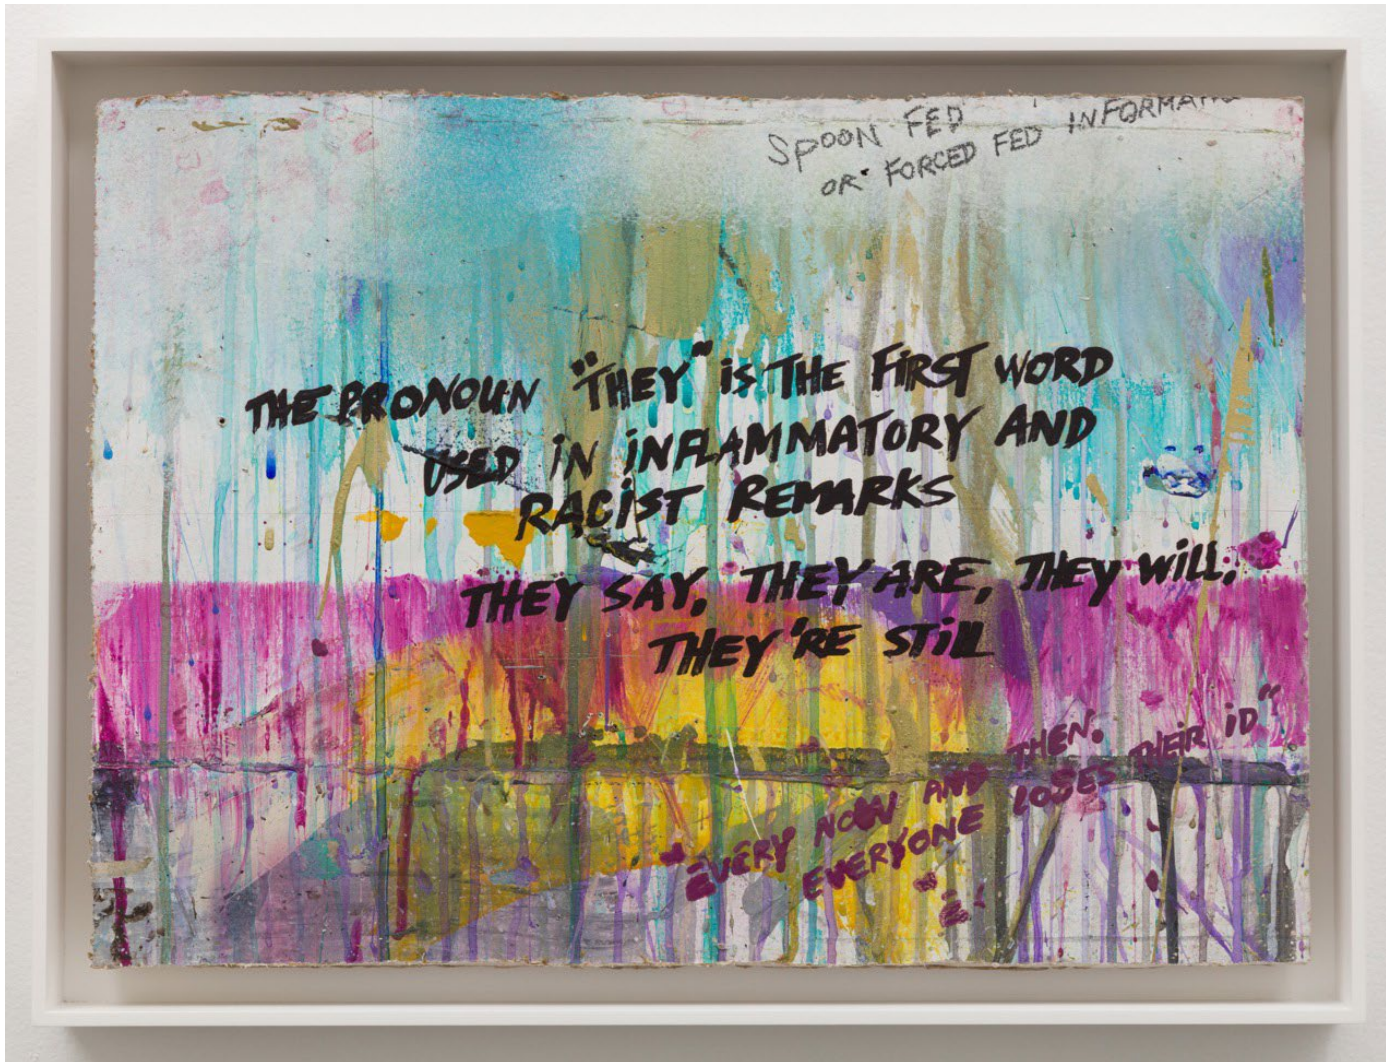 SPOON FED
OR FORCED FED
THE PRONOUN "THEY" iS THE FiRST WORD
USED iN iNFLAMMATORY AND
RACiST REMARKS
THEY SAY, THEY ARE, THEY WiLL,
THEY'RE STiLL
"EVERY NOW AND THEN.
EVERYONE LOSES THEiR iD"